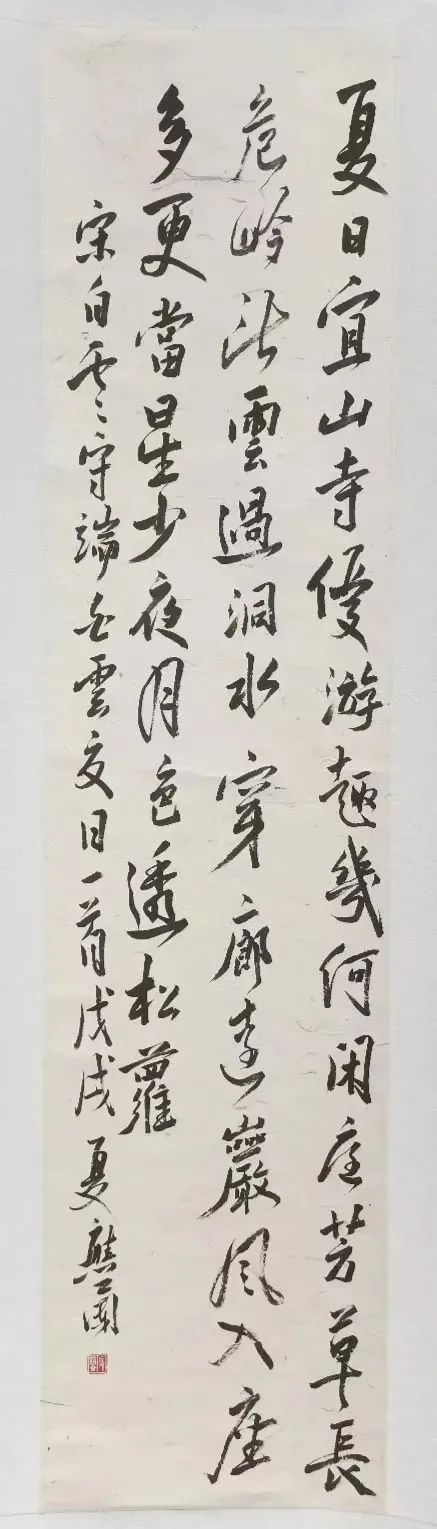 夏日宜山寺優游趣幾何閑庭芳草長
危岭雲過洞水穿廊遠巖風入座
多更當星少夜月色透松蘿
宋白雲守端白雲夏日一首戊戌夏應